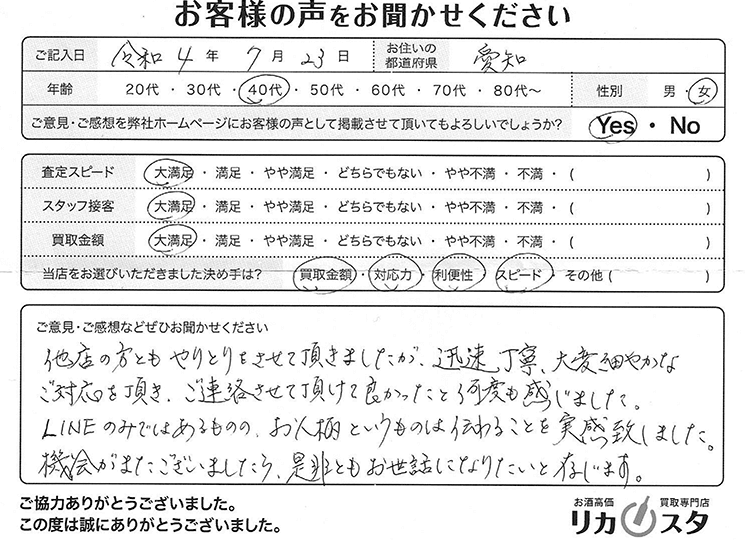 お客様の声をお聞かせください
ご記入日 令和 4 年 7 月 23 日 お住いの都道府県 愛知
年齢 20代 ・ 30代 ・ 40代 ・ 50代 ・ 60代 ・ 70代 ・ 80代〜 性別 男 ・ 女
ご意見・ご感想を弊社ホームページにお客様の声として掲載させて頂いてもよろしいでしょうか? Yes ・ No
査定スピード 大満足 ・ 満足 ・ やや満足 ・ どちらでもない ・ やや不満 ・ 不満 ・ ( )
スタッフ接客 大満足 ・ 満足 ・ やや満足 ・ どちらでもない ・ やや不満 ・ 不満 ・ ( )
買取金額 大満足 ・ 満足 ・ やや満足 ・ どちらでもない ・ やや不満 ・ 不満 ・ ( )
当店をお選びいただきました決め手は? 買取金額 ・ 対応力 ・ 利便性 ・ スピード ・ その他 ( )
ご意見・ご感想などぜひお聞かせください
他店の方とも やりとりをさせて頂きましたが、迅速、丁寧、大変細やかな
ご対応を頂き、ご連絡させて頂けて良かったと何度も感じました。
LINEのみではあるものの、お人柄というものは伝わることを実感致しました。
機会がまたございましたら、是非ともお世話になりたいと存じます。
ご協力ありがとうございました。
この度は誠にありがとうございます。
お酒高価 買取専門店
リカスタ